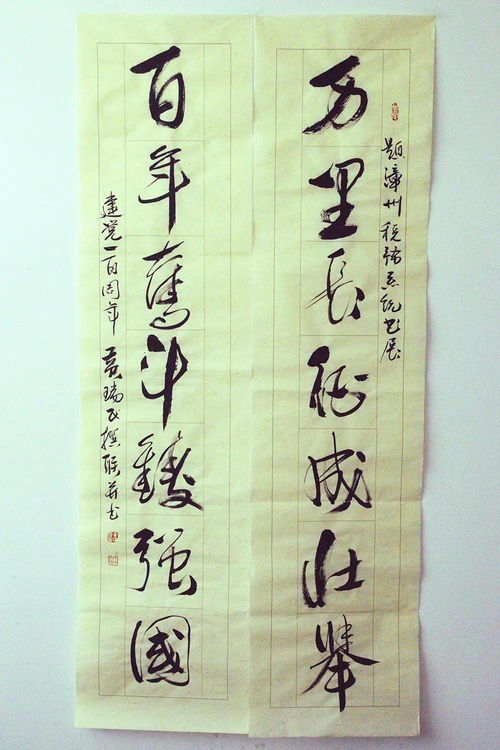 题漳州税务系统书展
万里長征成壮舉
百年奮斗鑄强國
建党一百周年 黄瑞民撰联并书